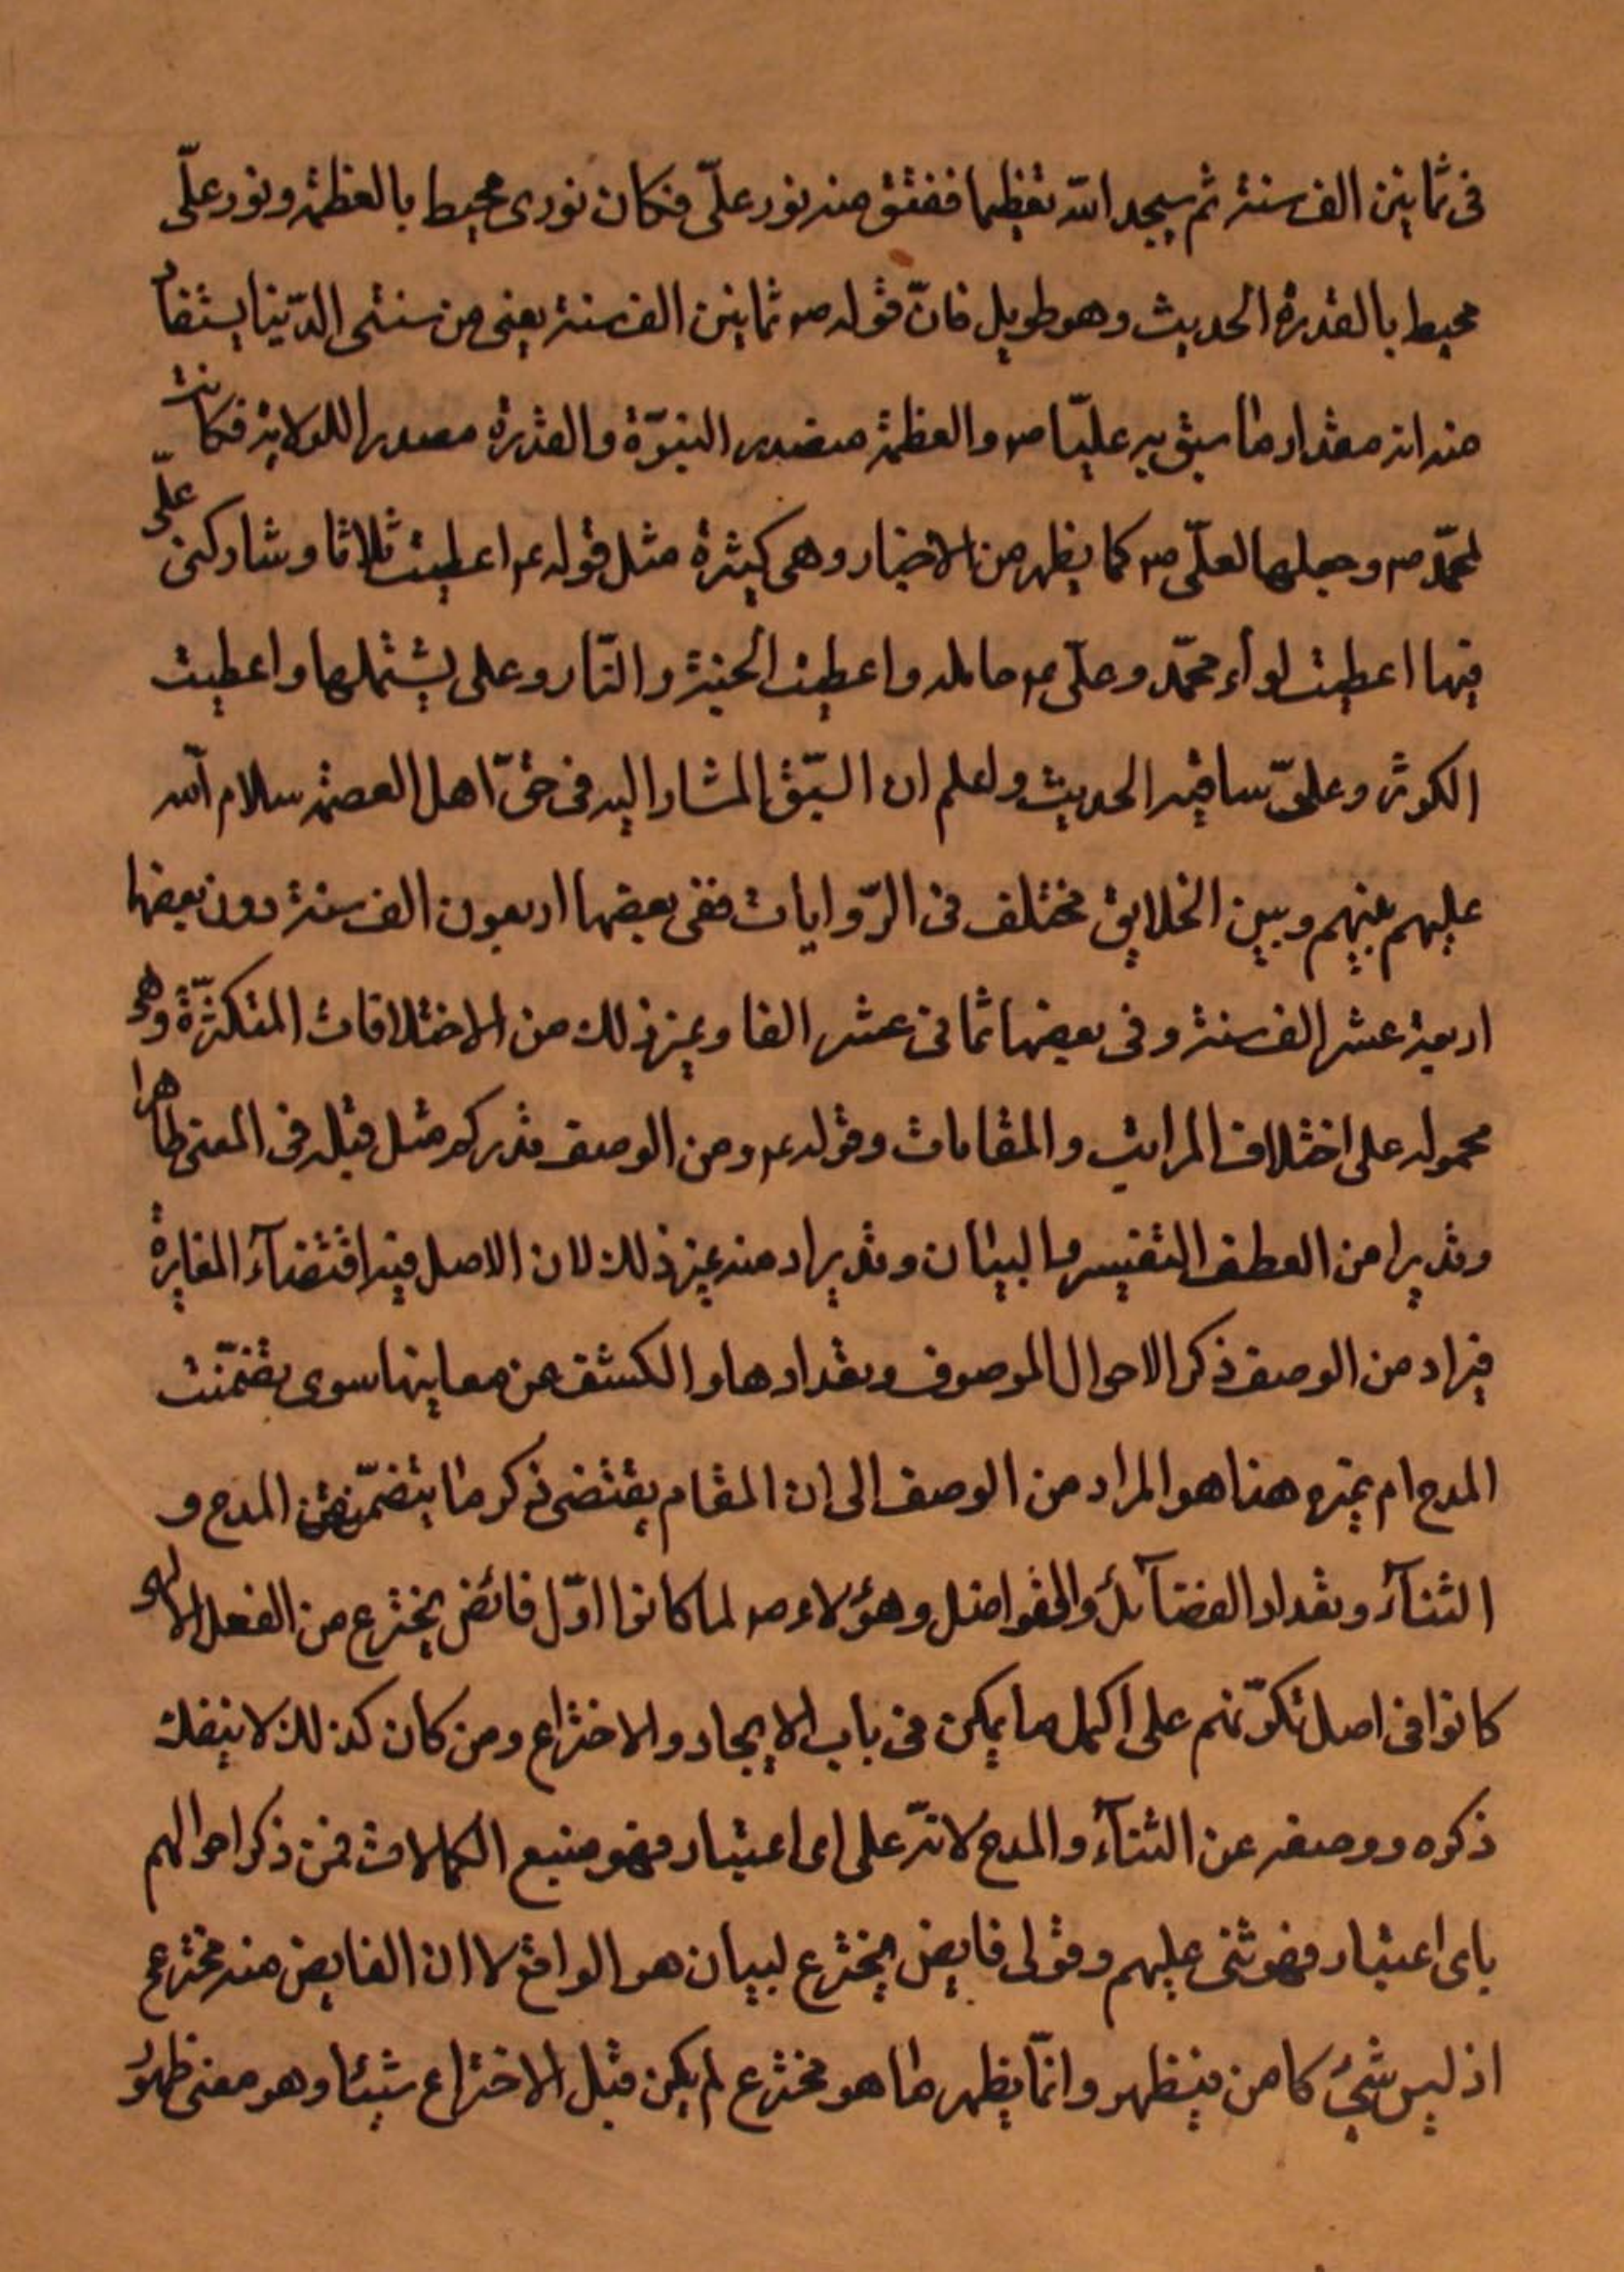 فى ثمانين الف سنة ثم سجد الله تعظيما ففتق منه نور علىّ فكان نورى محيط بالعظمة ونور علىّ
محيط بالقدرة الحديث وهو طويل فانّ قوله ص ثمانين الف سنة يعنى من سنى الدّنيا يستفاد
منه انه مقدار ما سبق به عليّا ص والعظمة مصدر النبوّة والقدرة مصدر اللولاية فكانت
لمحمّد ص وجعلها لعلّى ص كما يظهر من الاخبار وهى كثيرة مثل قوله ع اعطيت ثلاثا وشاركنى علّى
فيها اعطيت لواء محمّد وعلّى ع حامله واعطيت الجنة والنّار وعلى يشتملها واعطيت
الكوثر وعلىّ ساقيه الحديث واعلم ان السّبق المشار اليه فى حقّ اهل العصمة سلام الله
عليهم بينهم وبين الخلايق مختلف فى الرّوايات ففى بعضها اربعون الف سنة دون بعضها
اربعة عشر الف سنة وفى بعضها ثمانى عشر الفا وغير ذلك من الاختلافات المتكثرّة وهى
محموله على اختلاف المراتب والمقامات وقوله ع ومن الوصف قدركم مثل قبله فى المعنى ظاهرا
وقد يرا من العطف التفيسر والبيان وقد يراد منه غير ذلك لان الاصل فيه اقتضآء المغايرة
فيراد من الوصف ذكر الاحوال الموصوف وتعدادها والكشف عن معاينها سوى تضمّنت
المدح ام غيره هنا هو المراد من الوصف الى ان المقام يقتضى ذكر ما يتضمّن المدح و
الثنآء وتعداد الفضآئل والفواضل وهؤلاء ص لما كانوا اوّل فائض يخترع من الفعل الالهى
كانوا فى اصل تكوّنهم على اكمل ما يمكن فى باب الايجاد والاختراع ومن كان كذلك لا ينفك
ذكره ووصفه عن الثنآء والمدح لانّه على اى اعتبار فهو منبع الكمالات فمن ذكر احوالهم
باى اعتبار فهو ثنى عليهم وقولى فايض يخترع لبيان هو الواقع لا ان الفايض منه مخترع
اذ ليس شئ كامن فيظهر وانّما يظهر ما هو مخترع لم يكن قبل الاختراع شيئا وهو معنى ظهور